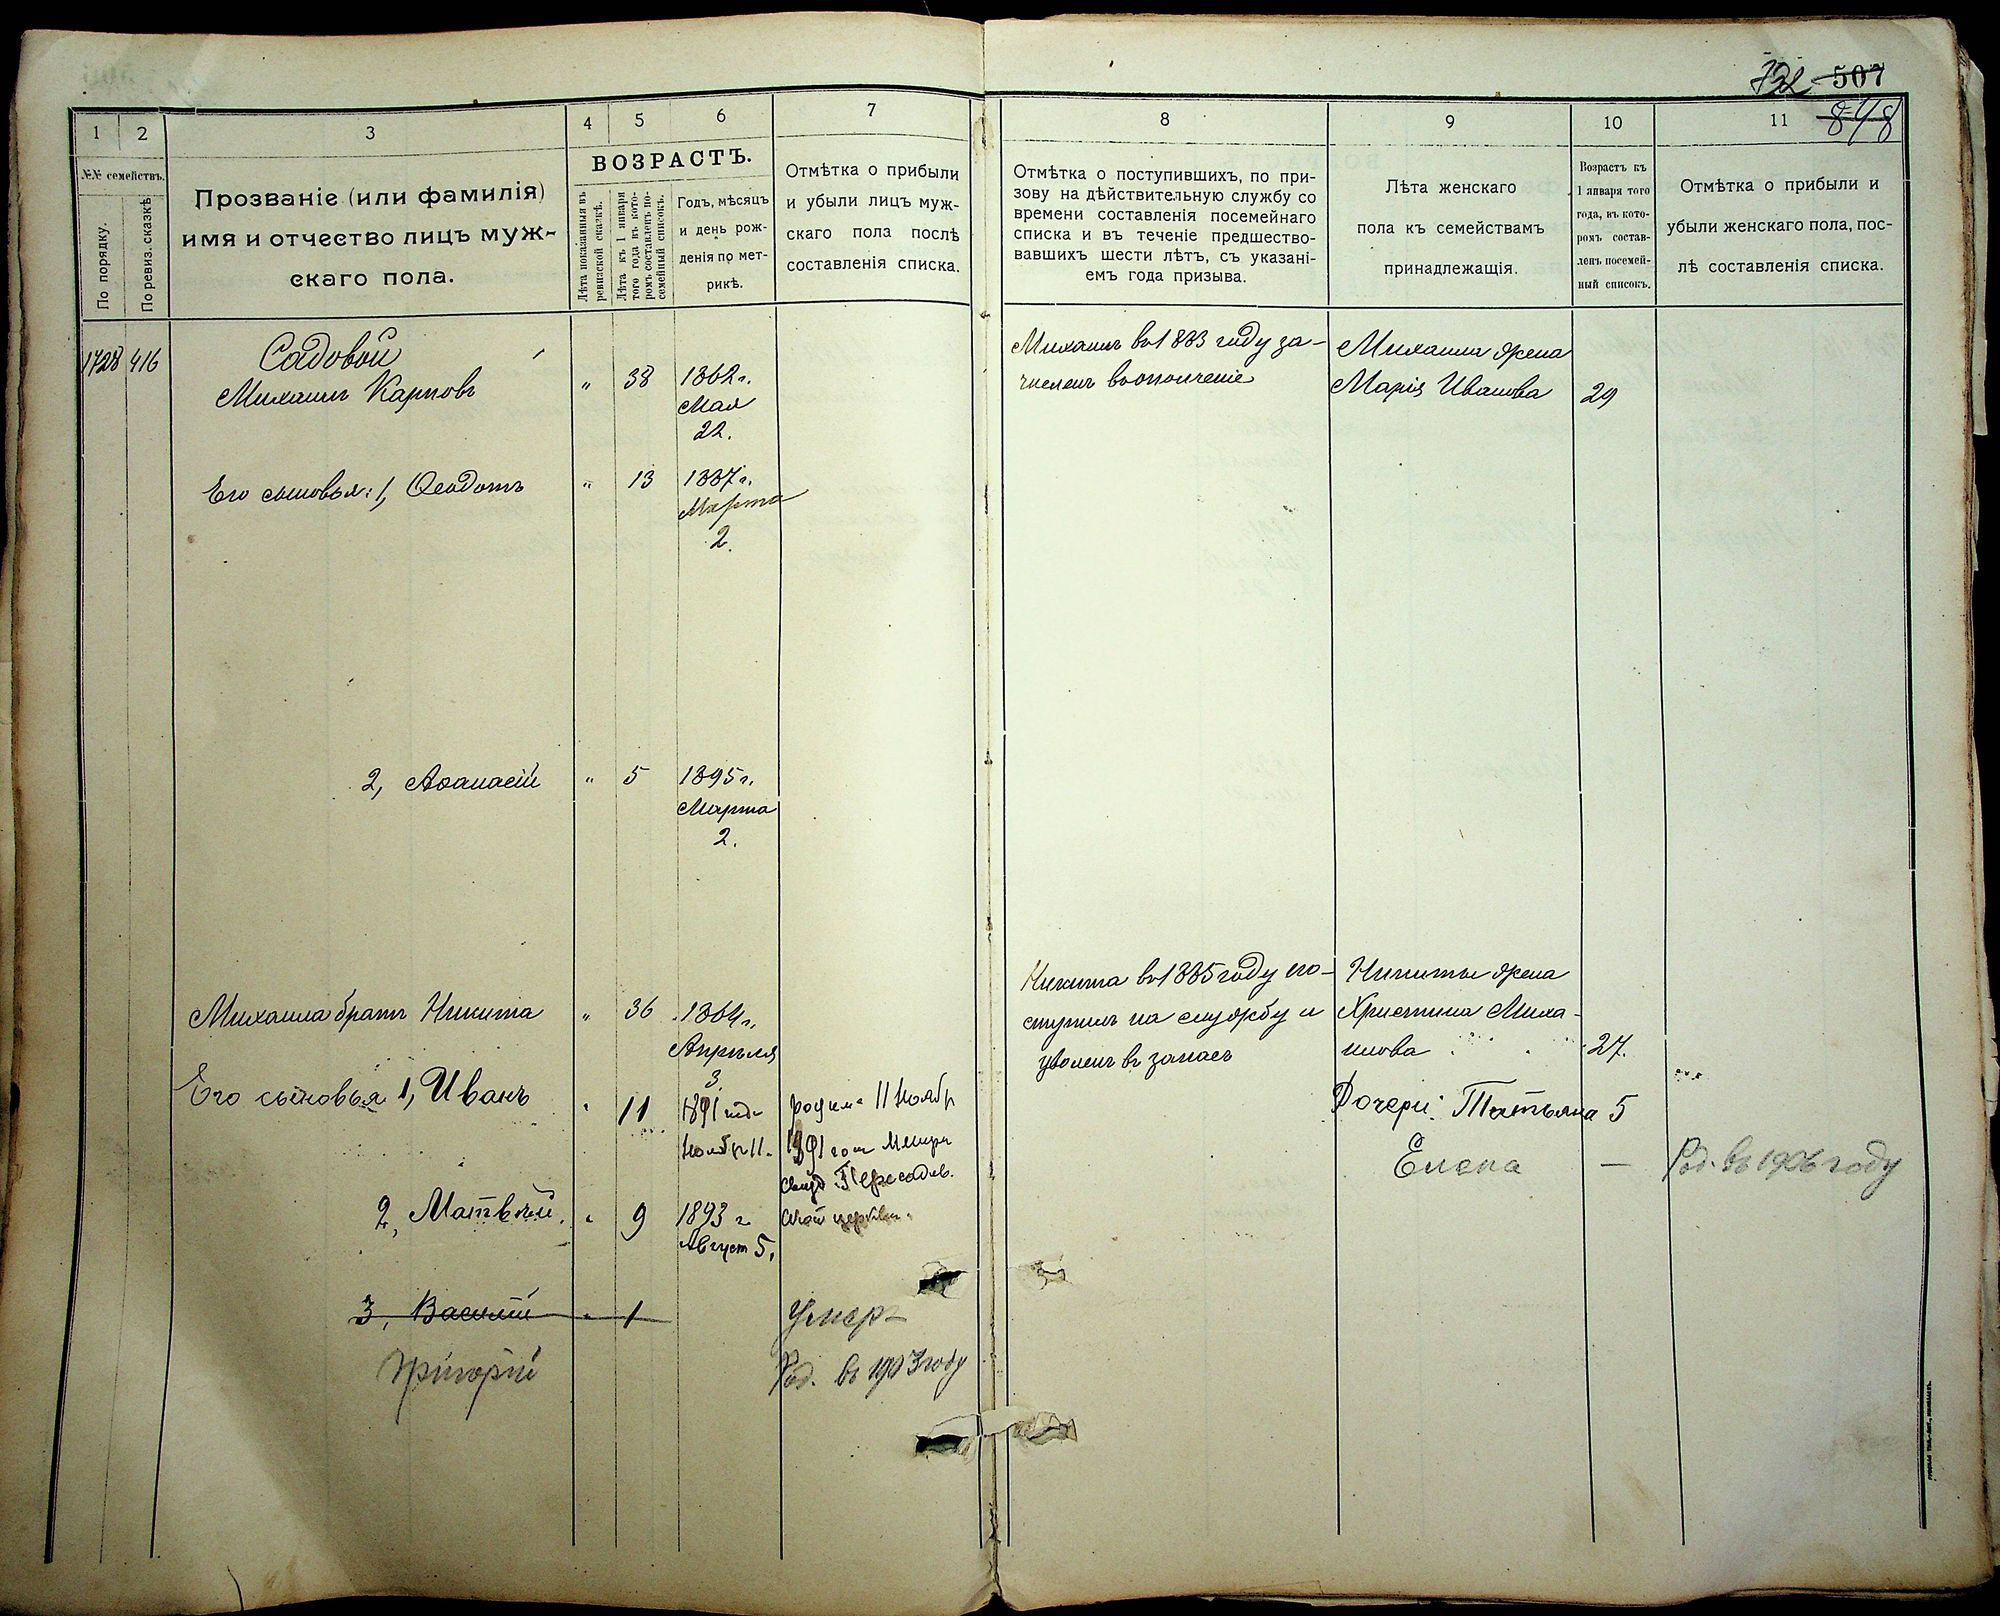 732 507
848
1
2
3
4
5
6
7
8
9
10
11
№№ семействъ.
По порядку.
По ревиз. сказкѣ
Прозваніе (или фамилія)
имя и отчество лицъ муж-
скаго пола.
ВОЗРАСТЪ.
Лѣта показанныя въ
ревизской сказкѣ.
Лѣта къ 1 января
того года въ кото-
ромъ составленъ по-
семейный списокъ.
Годъ, мѣсяцъ
и день рож-
денія по мет-
рикѣ.
Отмѣтка о прибыли
и убыли лицъ муж-
скаго пола послѣ
составленія списка.
Отмѣтка о поступившихъ, по при-
зову на дѣйствительную службу со
времени составленія посемейнаго
списка и въ теченіе предшество-
вавшихъ шести лѣтъ, съ указані-
емъ года призыва.
Лѣта женскаго
пола къ семействамъ
принадлежащія.
Возрастъ къ
1 января того
года, въ кото-
ромъ состав-
ленъ посемей-
ный списокъ.
Отмѣтка о прибыли и
убыли женскаго пола, пос-
лѣ составленія списка.
1728 416
Садовой
Михаилъ Карповъ " 38 1862 г.
Мая
22.
Михаилъ въ 1883 году за-
численъ въ ополченіе
Михаила жена
Марія Иванова 29
Его сыновья: 1, Ѳеодотъ " 13 1887 г.
Марта
2.
2, Аѳанасій " 5 1895 г.
Марта
2.
Михаила братъ Никита " 36 1864 г.
Апрѣля
3.
Никита въ 1885 году по-
ступилъ на службу и
уволенъ въ запасъ
Никиты жена
Христина Миха-
илова 27.
Его сыновья 1, Иванъ " 11 1891 года
Ноябр 11.
родил. 11 Ноябр
1891 года Метри
Свид. Пересадов.
ской церкви.
Дочери: Татьяна 5
Елена — Род. въ 1906 году
2, Матвѣй. " 9 1893 г.
Август 5.
3, Василій " 1 Умер
Григорій Род. въ 1903 году